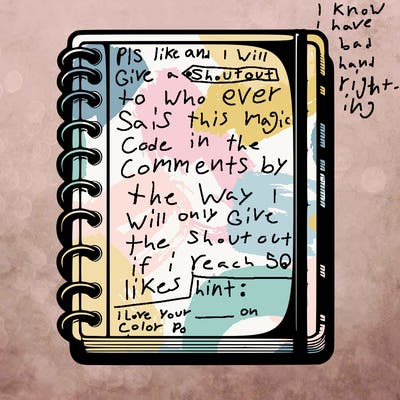 Pls like and I will
Give a Shoutout
to who ever
Sais this magic
Code in the
Comments by
the Way I
will only Give
the Shoutout
if i reach 50
likes hint:
I Love your ____ on
Color Po
I know
i have
bad
hand
right-
ing